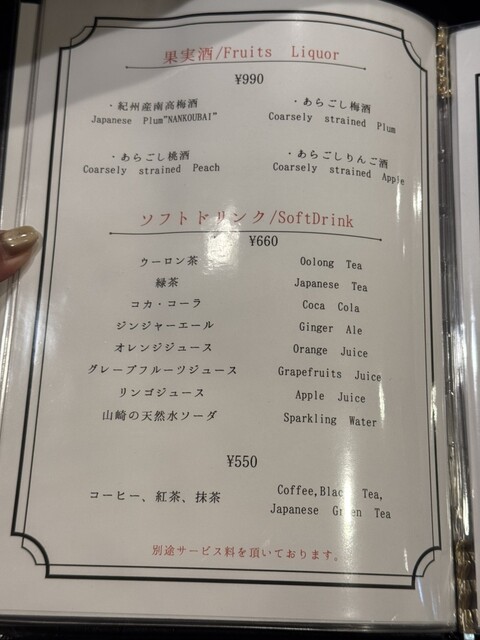 果実酒/Fruits Liquor
¥990
・紀州産南高梅酒
Japanese Plum"NANKOUBAI"
・あらごし梅酒
Coarsely strained Plum
・あらごし桃酒
Coarsely strained Peach
・あらごしりんご酒
Coarsely strained Apple
ソフトドリンク/SoftDrink
¥660
ウーロン茶 Oolong Tea
緑茶 Japanese Tea
コカ・コーラ Coca Cola
ジンジャーエール Ginger Ale
オレンジジュース Orange Juice
グレープフルーツジュース Grapefruits Juice
リンゴジュース Apple Juice
山崎の天然水ソーダ Sparkling Water
¥550
コーヒー、紅茶、抹茶 Coffee,Black Tea,
Japanese Green Tea
別途サービス料を頂いております。